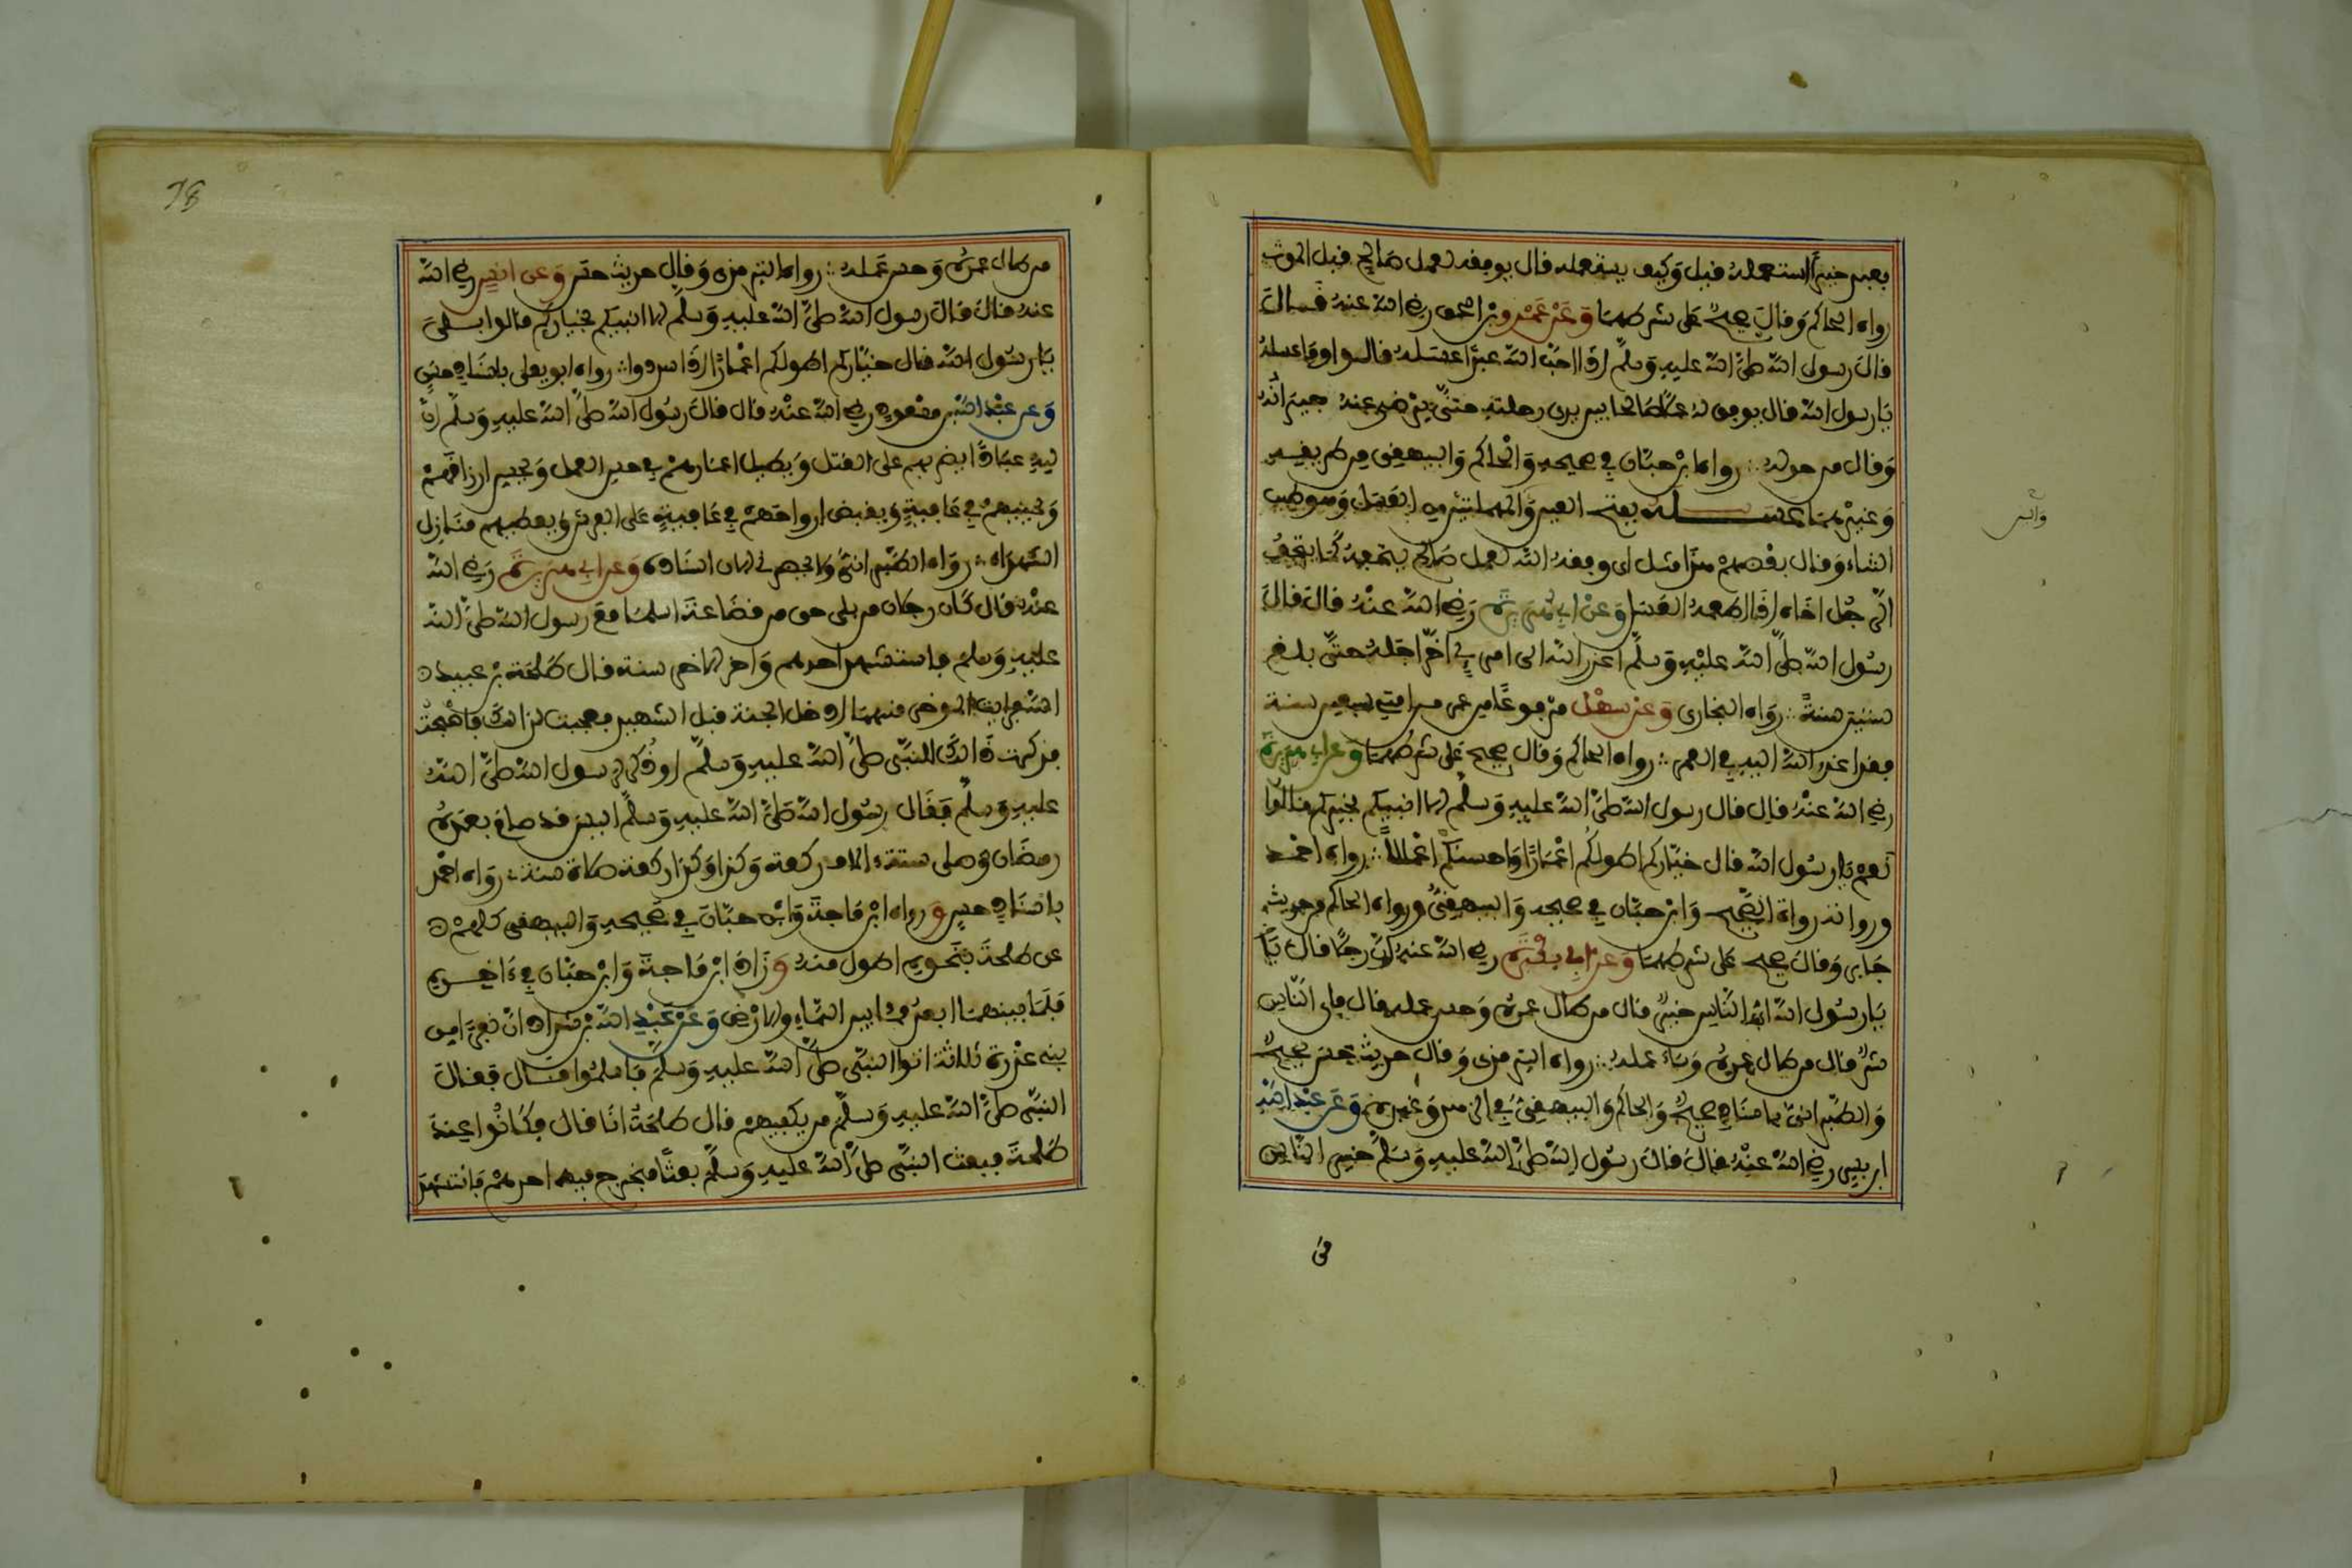 بعبد خيرا استعمله فيل وكيف يستعمله فال يوفقه لعمل صالح فبل الموت
رواه الحاكم وفال صحيح على شرطهما وعن عمرو بن الحمق رضي الله عنه فال
فال رسول الله صلى الله عليه وسلم إذا احب الله عبدا عسله فالوا وما عسله
يا رسول الله فال يوفق له عملا صالحا بين يدي رحلته حتى يرضى عنه جيرانه
وفال من حوله رواه ابن حبان في صحيحه والحاكم والبيهفي من طريفه
وغيرهما عسله بفتح العين والمهملتين من العسل وهو طيب
الثناء وفال بعضهم هذا مثل اي وفقه الله لعمل صالح يتحفه كما يتحف
الرجل اخاه إذا اطعمه العسل وعن ابي هريرة رضي الله عنه فال فال
رسول الله صلى الله عليه وسلم اعذر الله الى امرئ اخر اجله حتى بلغ
ستين سنة رواه البخاري وعن سهل مرفوعا من عمر من امتي سبعين سنة
ففد اعذر الله اليه في العمر رواه الحاكم وفال صحيح على شرطهما وعن ابي هريرة
رضي الله عنه فال فال رسول الله صلى الله عليه وسلم الا انبيكم بخيركم فالوا
نعم يا رسول الله فال خياركم اطولكم اعمارا واحسنكم اعمالا رواه احمد
ورواته رواة الصحيح وابن حبان في صحيحه والبيهفي ورواه الحاكم من حديث
جابر وفال صحيح على شرطهما وعن ابي بكرة رضي الله عنه ان رجلا فال يا
يا رسول الله اي الناس خير فال من طال عمره وحسن عمله فال فاي الناس
شر فال من طال عمره وساء عمله رواه الترمذي وفال حديث حسن صحيح
والطبراني باسناد صحيح والحاكم والبيهفي في الزهد وغيره وعن عبد الله
ابن بسر رضي الله عنه فال فال رسول الله صلى الله عليه وسلم خير الناس
من
من طال عمره وحسن عمله رواه الترمذي وفال حديث حسن وعن انس رضي الله
عنه فال فال رسول الله صلى الله عليه وسلم الا انبيكم بخياركم فالوا بلى
يا رسول الله فال خياركم اطولكم اعمارا إذا سددوا رواه ابو يعلى باسناد حسن
وعن عبد الله بن مسعود رضي الله عنه فال فال رسول الله صلى الله عليه وسلم ان
لله عبادا يضن بهم على الفتل ويطيل اعمارهم في حسن العمل ويحسن ارزافهم
ويحييهم في عافية ويفبض ارواحهم في عافية على الفرش ويعطيهم منازل
الشهداء رواه الطبراني ولا يحضرني الان اسناده وعن ابي هريرة رضي الله
عنه فال كان رجلان من بلي حي من فضاعة اسلما مع رسول الله صلى الله
عليه وسلم فاستشهد احدهم واخر الاخر سنة فال طلحة بن عبيد
الله فرايت الموخر منهما ادخل الجنة فبل الشهيد فعجبت لذالك فاصبحت
فذكرت ذالك للنبي صلى الله عليه وسلم او ذكر لرسول الله صلى الله
عليه وسلم ففال رسول الله صلى الله عليه وسلم اليس فد صام بعده
رمضان وصلى ستة الاف ركعة وكذا وكذا ركعة صلاة سنة رواه احمد
باسناد حسن ورواه ابن ماجة وابن حبان في صحيحه والبيهفي كلهم
عن طلحة بنحوه اطول منه وزاد ابن ماجة وابن حبان في ءاخره
فلما بينهما ابعد مما بين السماء والارض وعن عبد الله بن شداد ان نفرا من
بني عذرة ثلاثة اتوا النبي صلى الله عليه وسلم فاسلموا فال ففال
النبي صلى الله عليه وسلم من يكفيهم فال طلحة انا فال فكانوا عند
طلحة فبعث النبي صلى الله عليه وسلم بعثا فخرج فيه احدهم فاستشهد